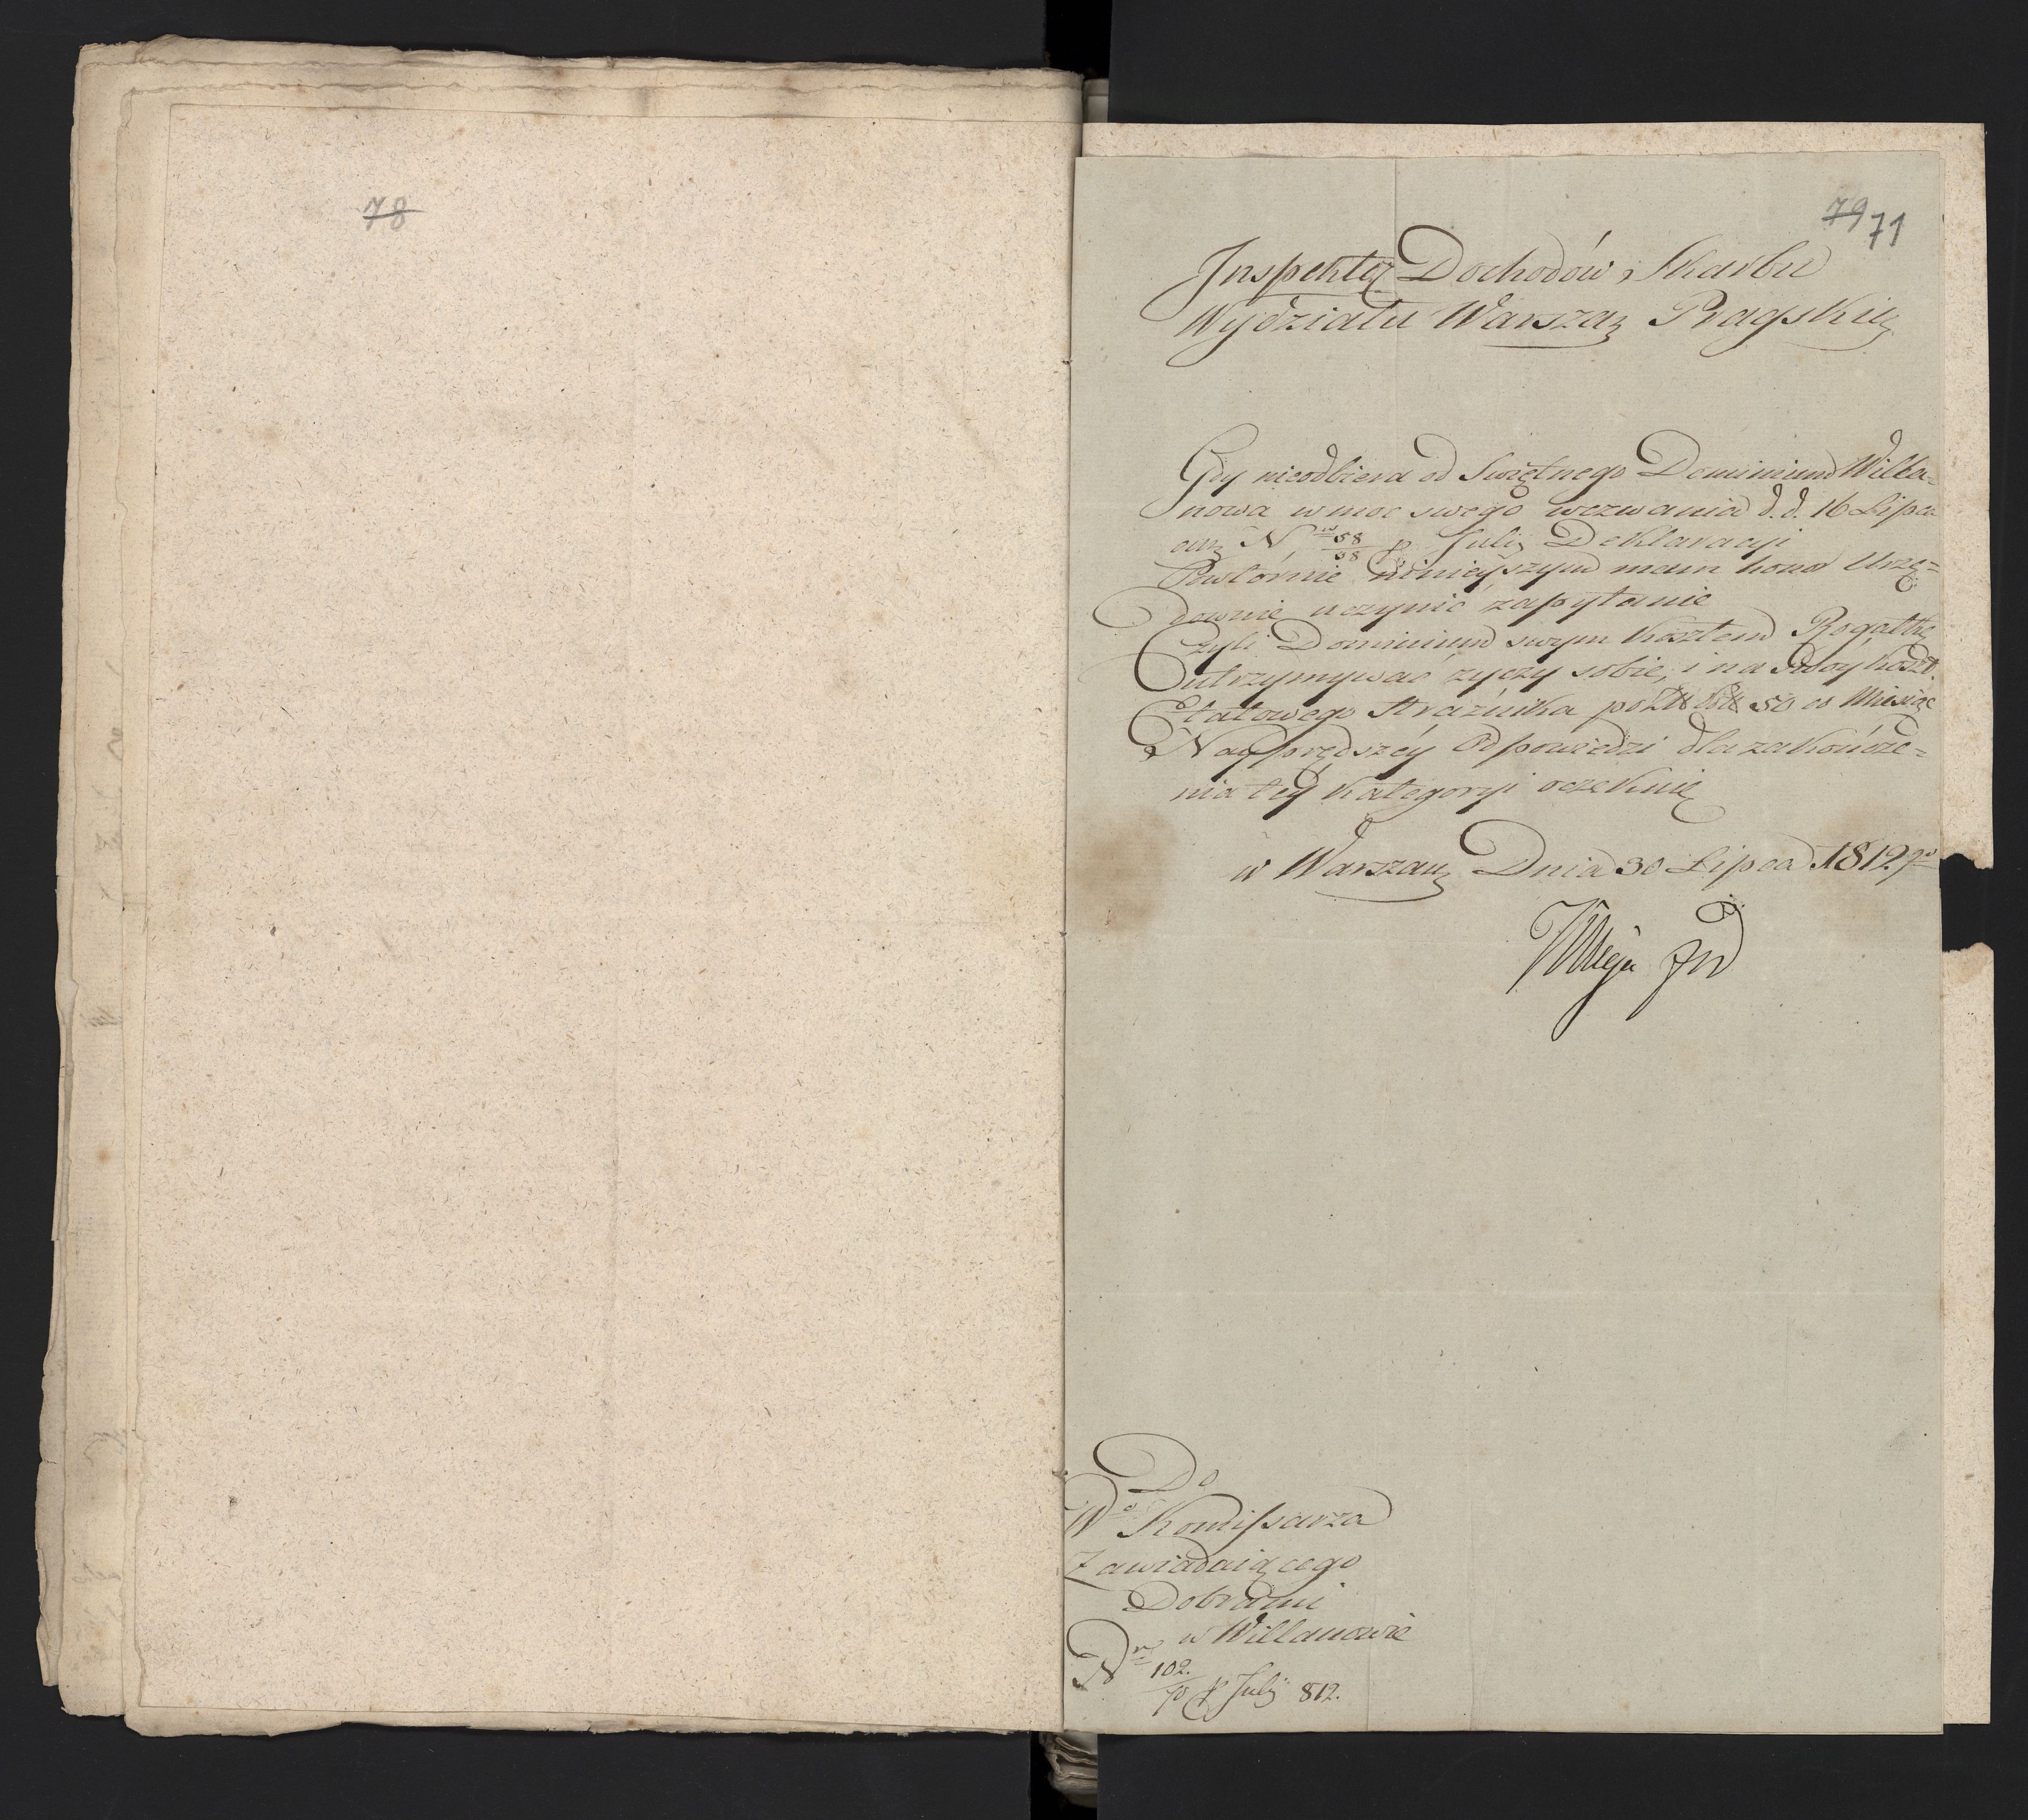 78
79 71
Inspektor Dochodów, Skarbu
Wydziału Warszaw Pragskie
Gdy nieodbiera od Swiętnego Dominium Willa=
nowa w moc swego wezwania d.d. 16 Lipca
N 58/38 p Julii Deklaracyi
Powtórnie ninieyszym mam honor Urzę=
downie uczynić zapytanie
Czyli Dominium swym kosztem Rogatkę
utrzymywać życzy sobie, i na swoy koszt
Etatowego Strażnika po 50 co Miesiąc
Nayprędszéy Odpowiedzi dla zakończe=
nia téy Kategoryi oczekuię
w Warszaw Dnia 30 Lipca 1812 r
Do
W° Kommissarza
Zawiadaiącego
Dobrami
w Willanowie
N 102/70 p Julij 812.